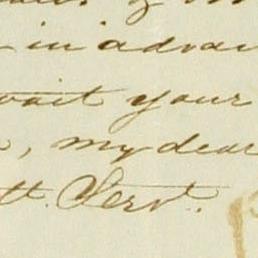 in advan
wait your
, my dear
tt. Servt.